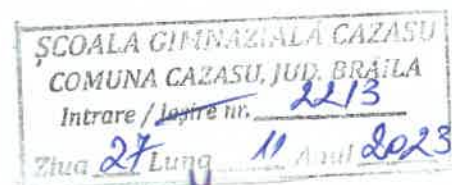 ȘCOALA GIMNAZIALĂ CAZASU
COMUNA CAZASU, JUD. BRĂILA
Intrare / Ieșire nr. 2213
Ziua 27 Luna 11 Anul 2023